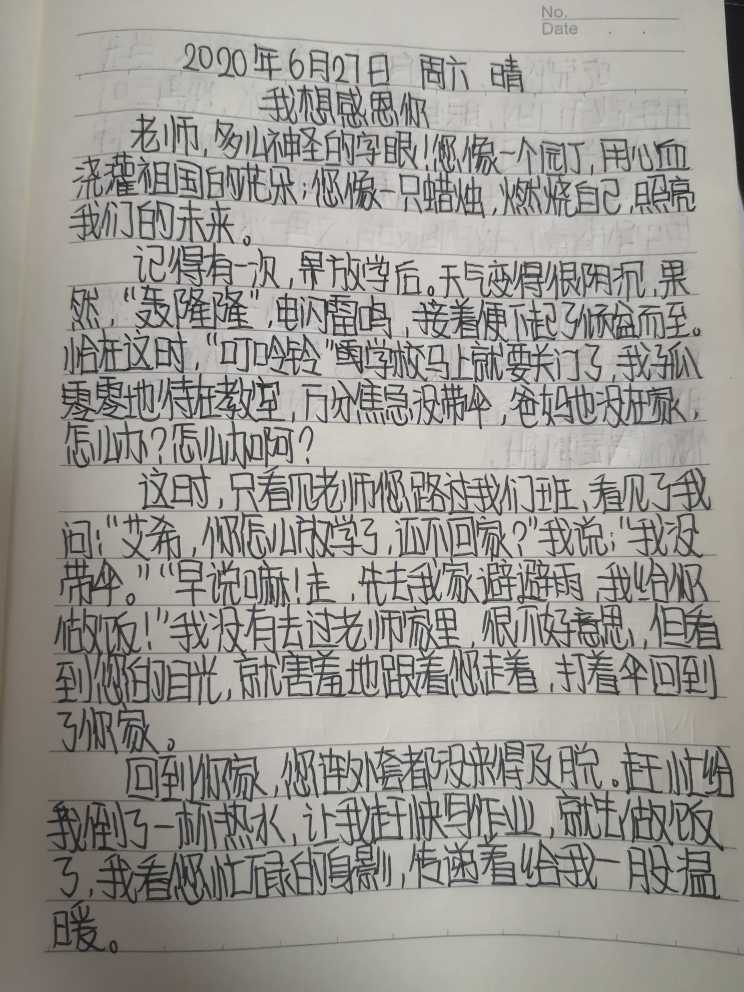 No.
Date
2020年6月27日 周六 晴
我想感恩你
老师,多么神圣的字眼!您像一个园丁,用心血
浇灌祖国的花朵;您像一只蜡烛,燃烧自己,照亮
我们的未来。
记得有一次,早放学后。天气变得很阴沉,果
然,“轰隆隆”,电闪雷鸣,接着便下起了倾盆而至。
恰在这时,“叮呤铃”学校马上就要关门了,我孤
零零地待在教室,万分焦急没带伞,爸妈也没在家,
怎么办?怎么办啊?
这时,只看见老师您路过我们班,看见了我
问:“艾希,你怎么放学了,还不回家?”我说:“我没
带伞。”“早说嘛!走,先去我家避避雨,我给你
做饭!”我没有去过老师家里,很不好意思,但看
到您的目光,就害羞地跟着您走着,打着伞回到
了你家。
回到你家,您连外套都没来得及脱。赶忙给
我倒了一杯热水,让我赶快写作业,就去做饭
了,我看您忙碌的身影,传递着给我一股温
暖。